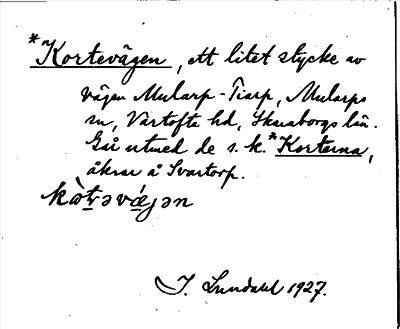 *Kortevägen, ett litet stycke av
vägen Mularp-Tiarp, Mularps
sn, Vartofta hd, Skaraborgs län.
Går utmed de s.k. *Korterna,
åkrar å Svartorp.
J. Lundahl 1927.